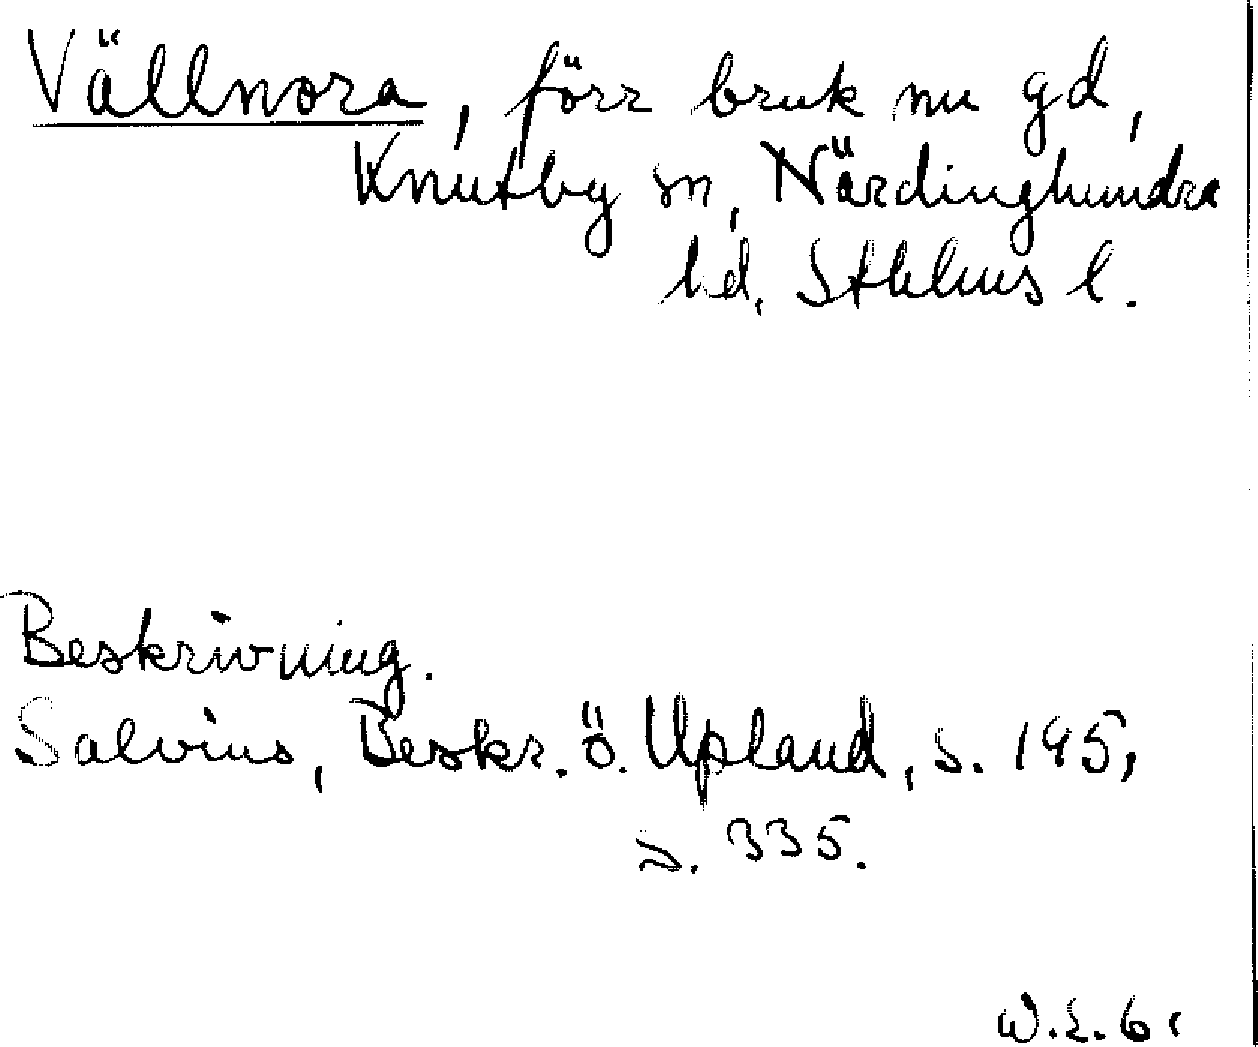 Vällnora, förr bruk nu gd,
Knutby sn, Närdinghundra
hd, Sthlms l.
Beskrivning.
Salvius, Beskr. ö. Upland, s. 195,
s. 335.
W.L. 61